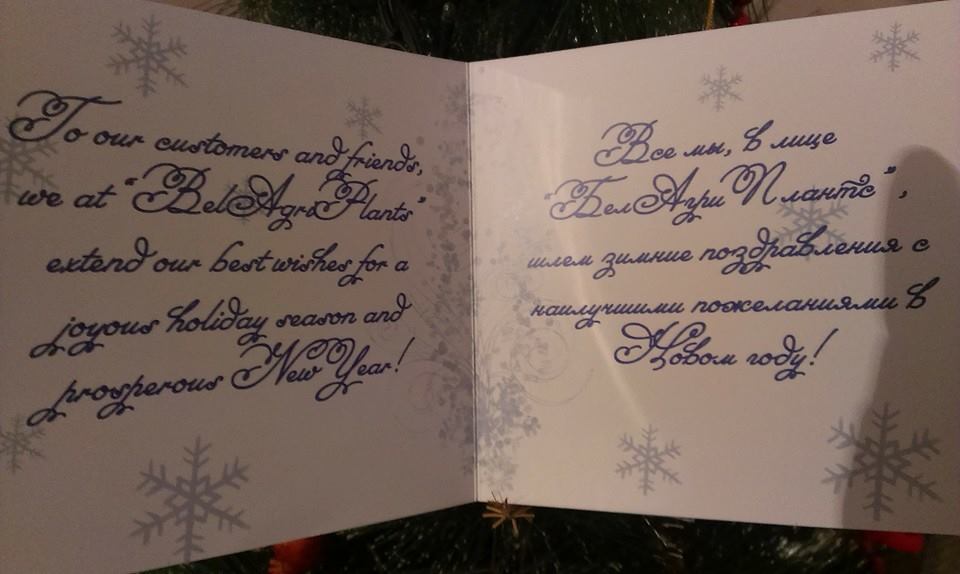 To our customers and friends,
we at "BelAgroPlants"
extend our best wishes for a
joyous holiday season and
prosperous New Year!
Все мы, в лице
"БелАгриПлантс",
шлем зимние поздравления с
наилучшими пожеланиями в
Новом году!